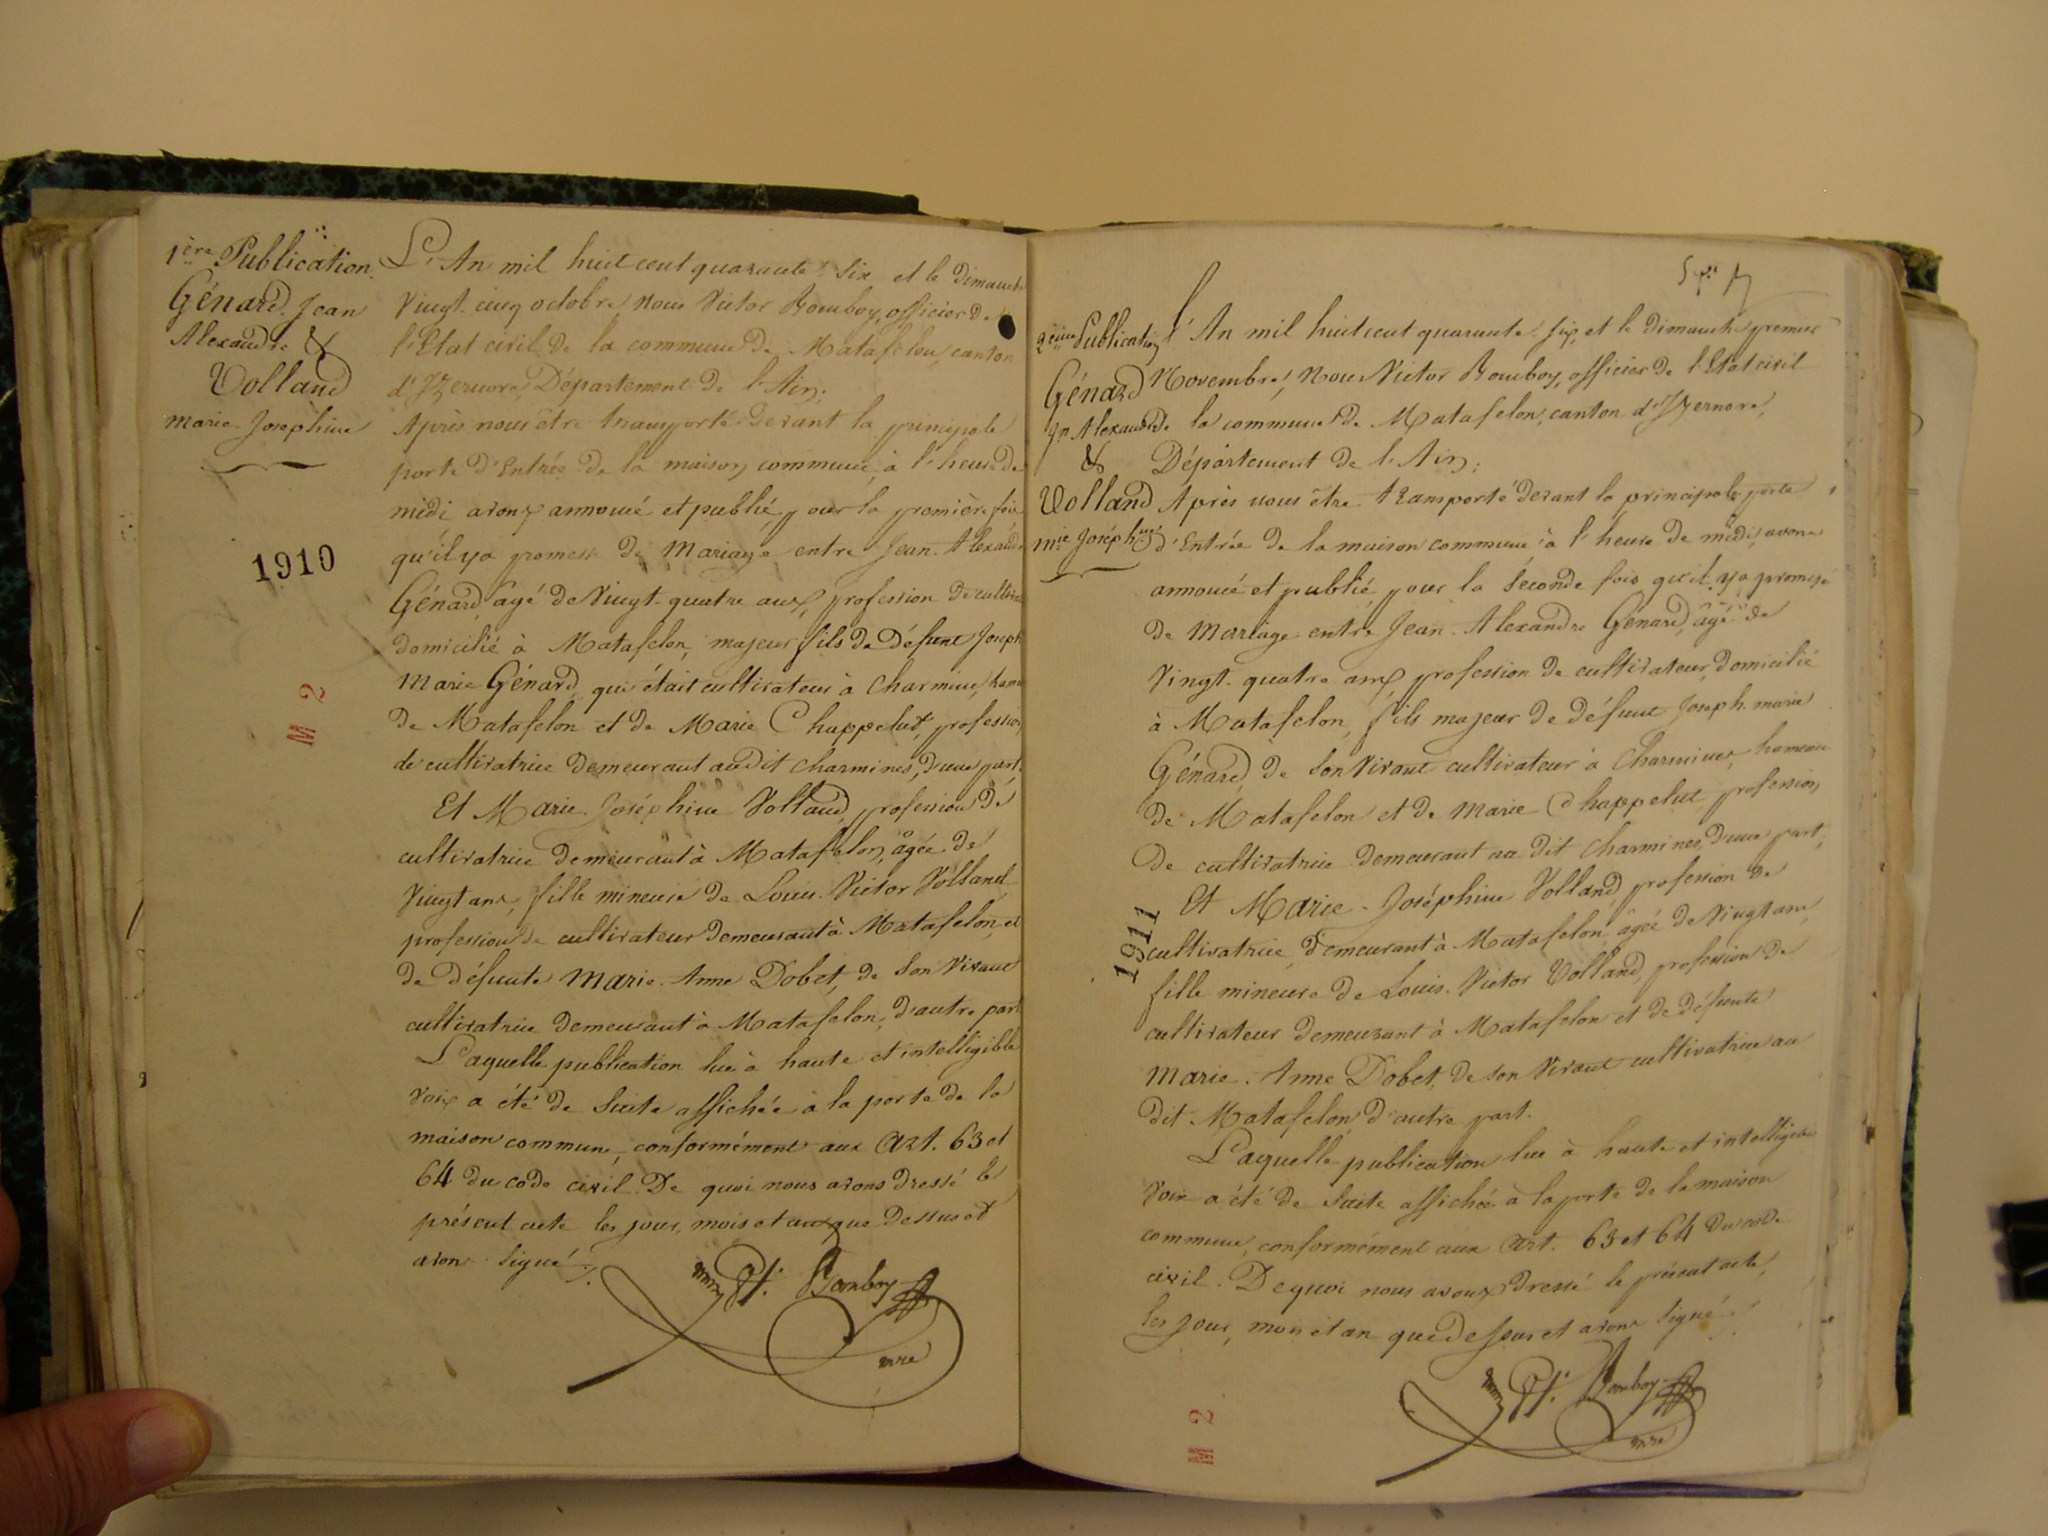 1ère Publication.
Génard Jean
Alexandre &
Volland
marie Joséphine
1910
M 2
L'An mil huit cent quarante-six et le Dimanche
Vingt-cinq octobre, Nous Victor Bomboy, officier de
l'Etat civil de la commune de Matafelon, canton
d'Izernore, Département de l'Ain;
Après nous être transporté devant la principale
porte d'Entrée de la maison commune, à l'heure de
midi avons annoncé et publié pour la première fois
qu'il y a promesse de Mariage entre Jean-Alexandre
Génard, âgé de Vingt-quatre ans, profession de
domicilié à Matafelon, majeur fils de Défunt Joseph
Marie Génard, qui était cultivateur à Charmine,
de Matafelon et de Marie Chappelut, profession
de cultivatrice demeurant audit Charmines, d'une part.
Et Marie-Joséphine Volland, profession de
cultivatrice demeurant à Matafelon, âgée de
Vingt ans, fille mineure de Louis-Victor Volland,
profession de cultivateur demeurant à Matafelon, et
de défunte Marie-Anne Dobet, de son Vivant
cultivatrice demeurant à Matafelon, d'autre part
Laquelle publication lue à haute et intelligible
voix a été de suite affichée à la porte de la
maison commune, conformément aux Art. 63 et
64 du code civil. De quoi nous avons dressé le
présent acte les jour, mois et an que dessus et
avons signé.
Vt. Bomboy
mre
2ème Publication
Génard
Jn Alexandre
&
Volland
mie Joséphine
L'An mil huit cent quarante-six, et le dimanche premier
Novembre, Nous Victor Bomboy, officier de l'Etat civil
de la commune de Matafelon, canton d'Izernore,
Département de l'Ain;
Après nous être transporté devant la principale porte
d'Entrée de la maison commune à l'heure de midi, avons
annoncé et publié, pour la seconde fois qu'il y a promesse
de Mariage entre Jean-Alexandre Génard, âgé de
Vingt-quatre ans, profession de cultivateur, domicilié
à Matafelon, fils majeur de défunt Joseph-marie
Génard, de son Vivant cultivateur à Charmines, hameau
de Matafelon et de Marie Chappelut, profession
de cultivatrice demeurant au dit Charmines, d'une part,
Et Marie-Joséphine Volland, profession de
cultivatrice, demeurant à Matafelon, âgée de Vingt ans,
fille mineure de Louis-Victor Volland, profession de
cultivateur demeurant à Matafelon et de défunte
Marie-Anne Dobet, de son Vivant cultivatrice au
dit Matafelon, d'autre part.
Laquelle publication lue à haute et intelligible
voix a été de suite affichée à la porte de la maison
commune, conformément aux Art. 63 et 64 du code
civil. De quoi nous avons dressé le présent acte,
les jour, mois et an que dessus et avons signé.
Vt. Bomboy
mre
1911
M 2